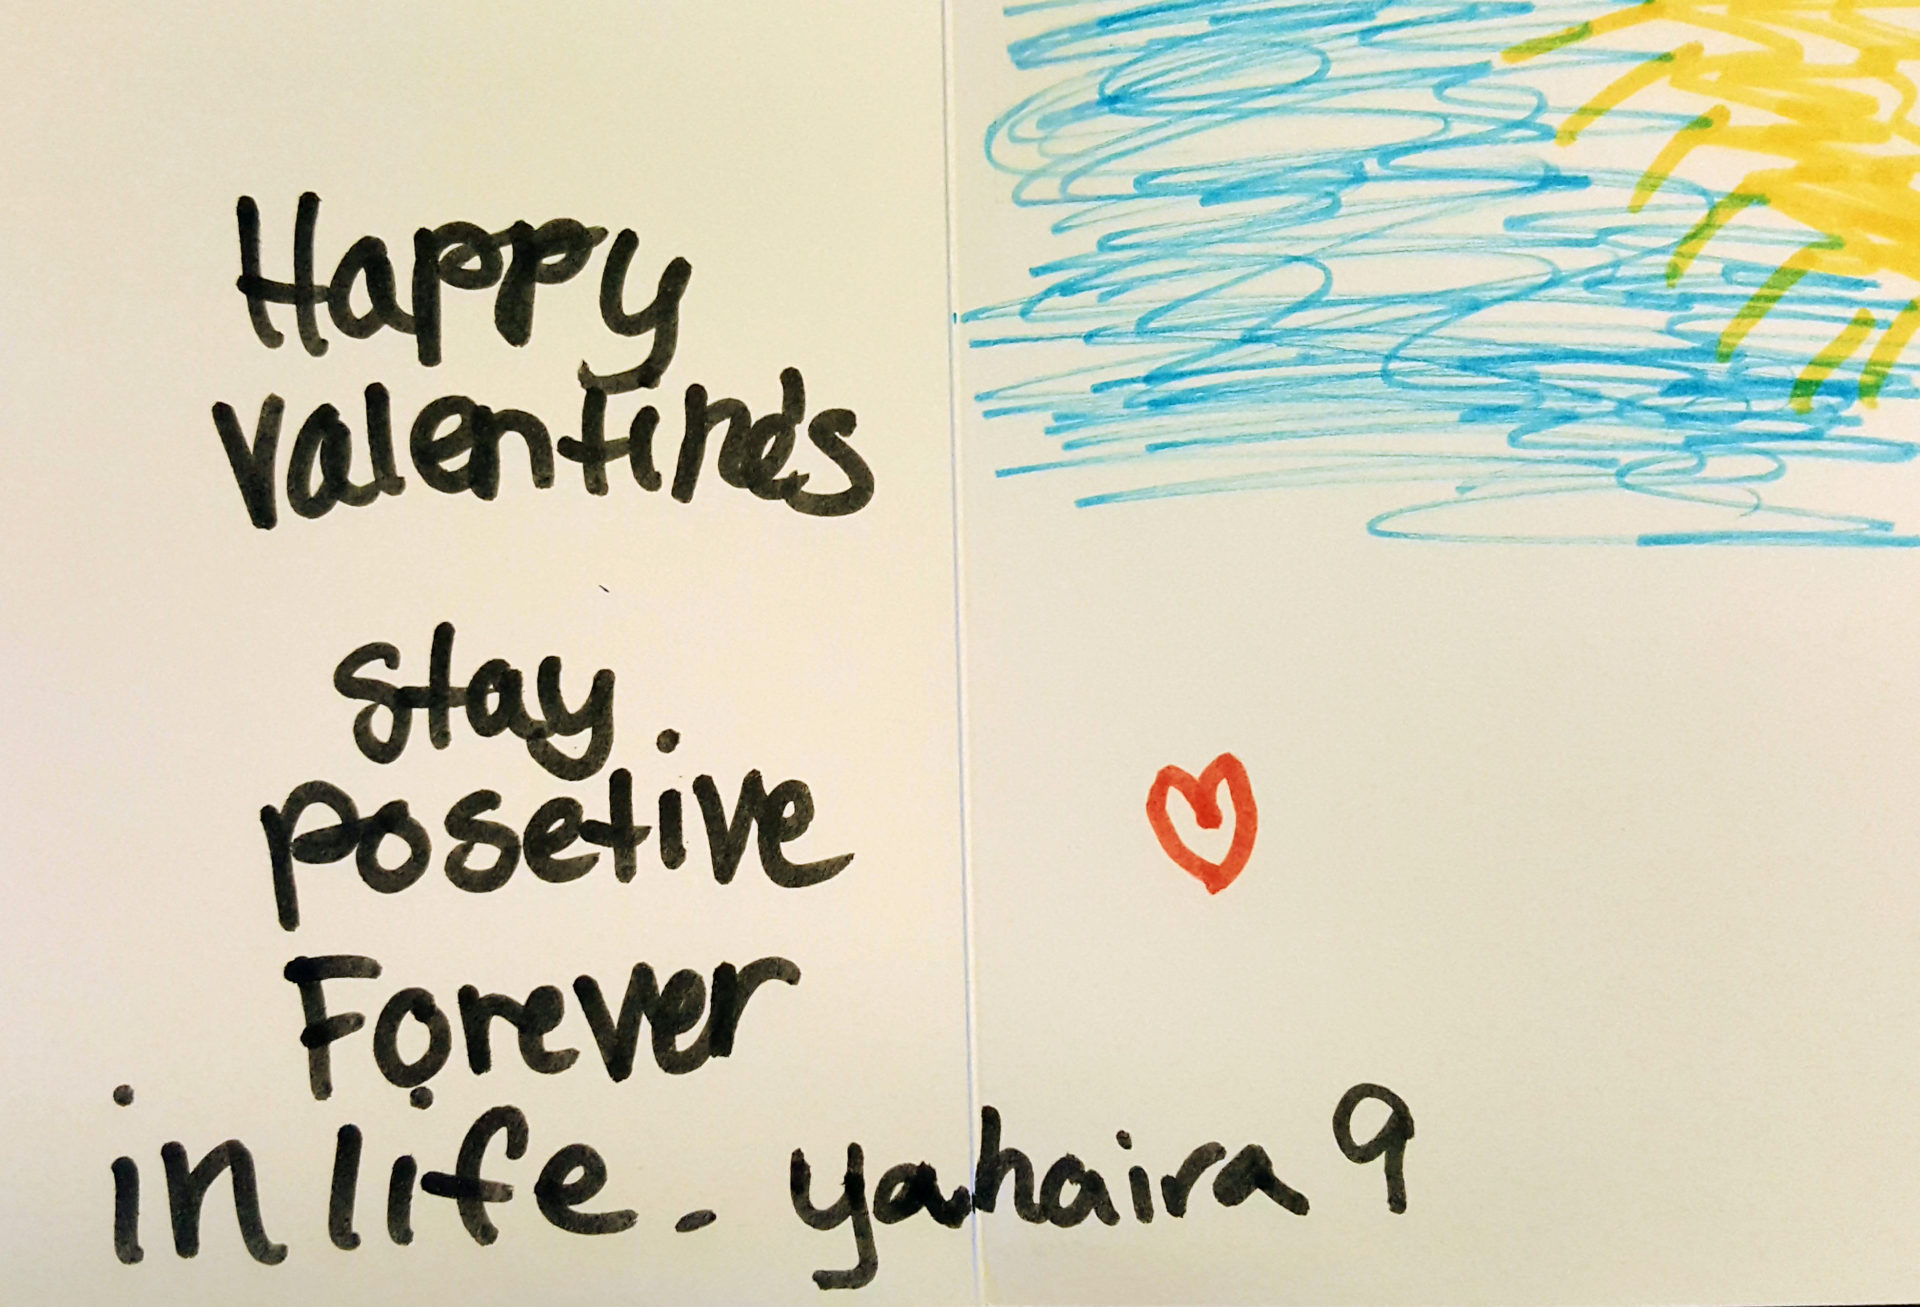 Happy
valentine's
stay
posetive
Forever
in life - yahaira 9